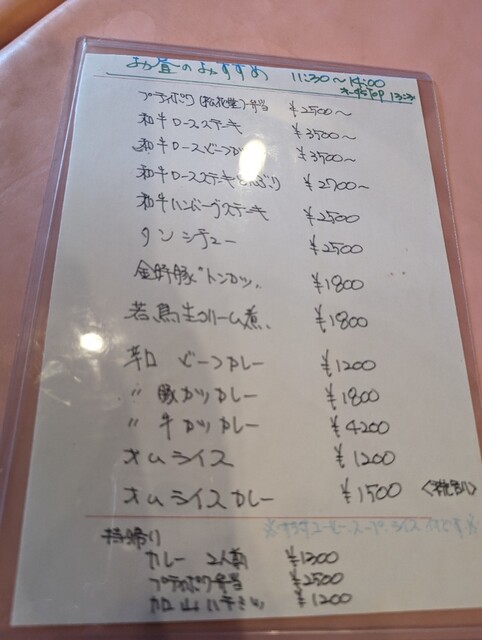 お昼のおすすめ 11:30〜14:00
オーダーstop 13:30
プティポワ(松花堂)弁当 ¥2500〜
和牛ロースステーキ ¥3500〜
和牛ロースビーフカツ ¥3500〜
和牛ロースステーキどんぶり ¥2700〜
和牛ハンバーグステーキ ¥2500
タンシチュー ¥2500
金野豚"トンカツ ¥1800
若鳥生クリーム煮 ¥1800
辛口 ビーフカレー ¥1200
〃 豚カツカレー ¥1800
〃 牛カツカレー ¥4200
オムライス ¥1200
オムライスカレー ¥1500 <税別>
コーヒー、スープ、ライス
持帰り
カレー 2人前 ¥1300
プティポワ弁当 ¥2500
¥1200